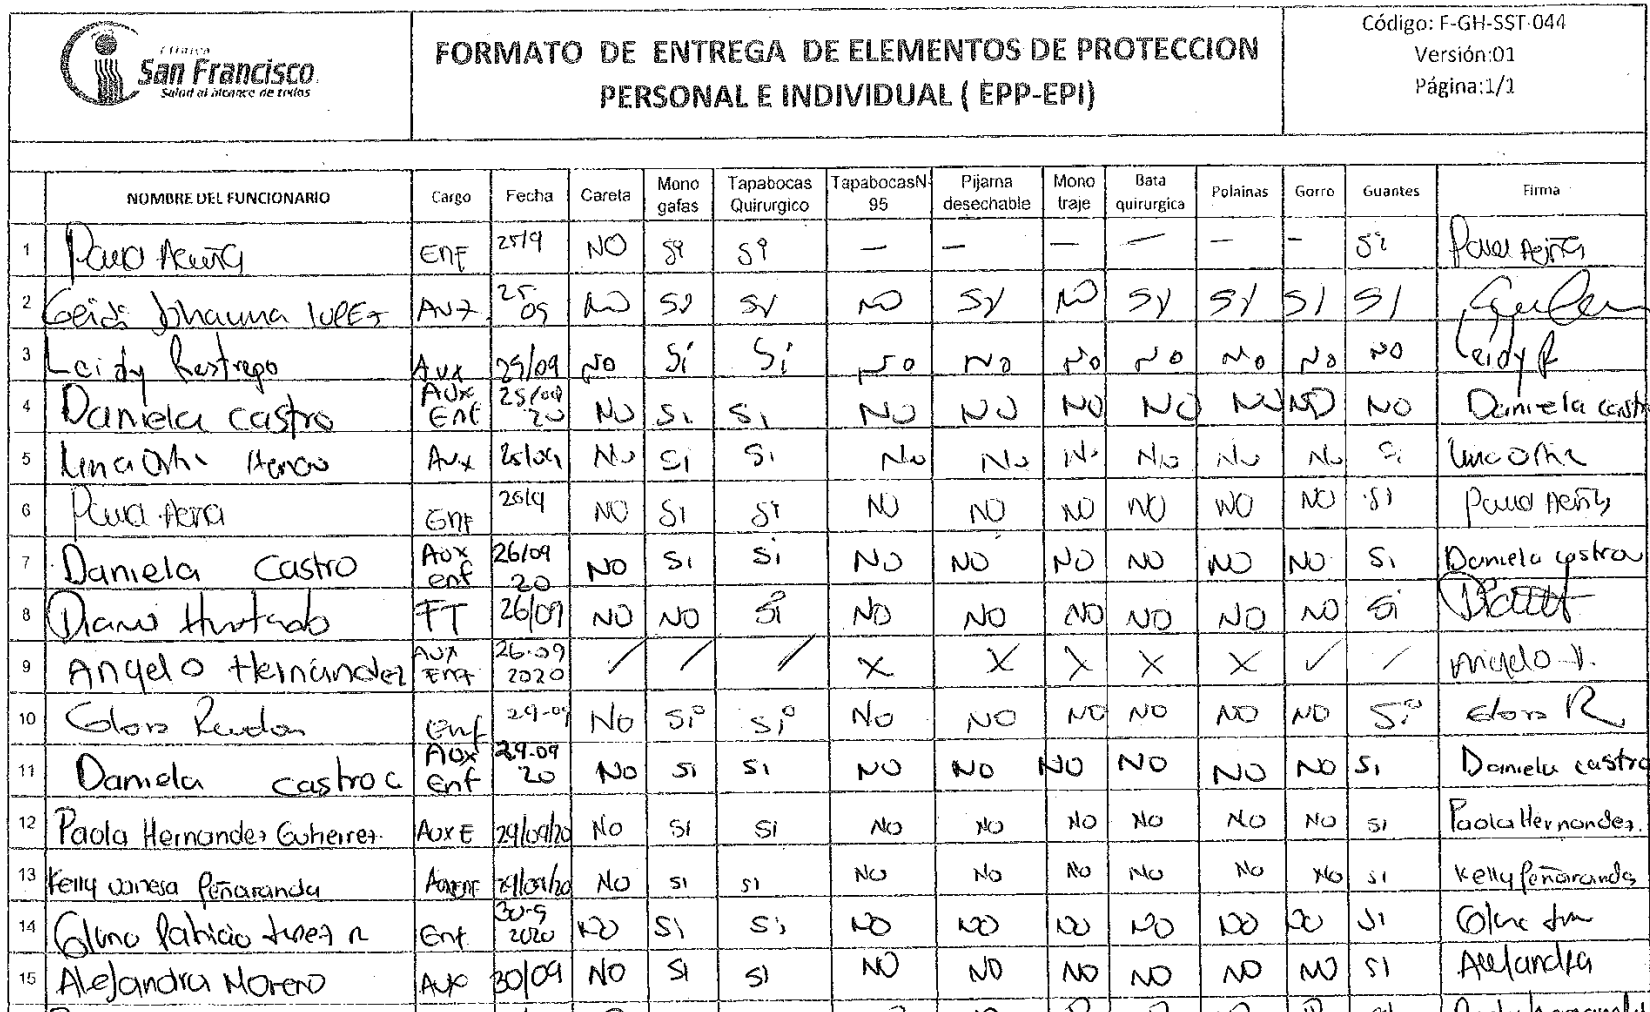 Clinica
San Francisco
Salud al alcance de todos
FORMATO DE ENTREGA DE ELEMENTOS DE PROTECCION
PERSONAL E INDIVIDUAL ( EPP-EPI)
Código: F-GH-SST-044
Versión:01
Página:1/1
NOMBRE DEL FUNCIONARIO Cargo Fecha Careta Mono gafas Tapabocas Quirurgico TapabocasN-95 Pijama desechable Mono traje Bata quirurgica Polainas Gorro Guantes Firma
1 Enf 25/9 NO Si Si — — — — — — Si
2 Johanna AUX 25 09 NO SI SI NO SI NO SI SI SI SI
3 Leidy Restrepo Aux 29/09 No Si Si No No No No No No NO Leidy R
4 Daniela castro Aux Enf 25/09 20 No Si Si No NO NO NO NO NO NO Daniela castro
5 Aux 25/09 No Si Si No No No No No No Si
6 Enf 25/9 NO SI Si NO NO NO NO NO NO SI
7 Daniela Castro Aux enf 26/09 20 NO Si Si NO NO NO NO NO NO Si Daniela castro
8 Hurtado FT 26/09 NO NO Si NO NO NO NO NO NO Si
9 Angelo Hernández Aux Enf 26-09 2020 / / / X X X X X ✓ / Angelo H.
10 Rendon Enf 29-09 No Si Si No NO NO NO NO NO Si R
11 Daniela castro c Aux Enf 29-09 20 No Si Si NO NO NO NO NO NO Si Daniela castro
12 Paola Hernandez Gutierrez Aux E 29/09/20 No SI SI No No No No No No SI Paola Hernandez.
13 Kelly vanesa Peñaranda Auxenf 29/09/20 No SI SI No No No No No No SI Kelly Peñaranda
14 Enf 30-9 2020 NO SI Si NO NO NO NO NO NO SI
15 Alejandra Moreno Aux 30/09 NO SI SI NO NO NO NO NO NO SI Alejandra